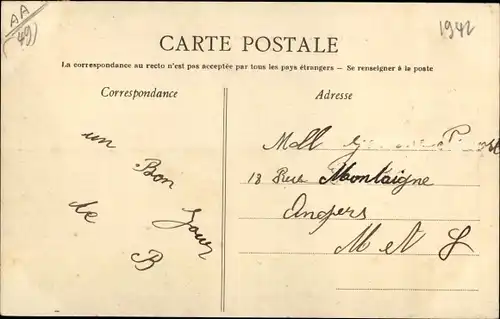 AA
(49)
1942
CARTE POSTALE
La correspondance au recto n'est pas acceptée par tous les pays étrangers — Se renseigner à la poste
Correspondance
Adresse
un
Bon
Jour
de
B
Mell
18 Rue Montaigne
Angers
M et L